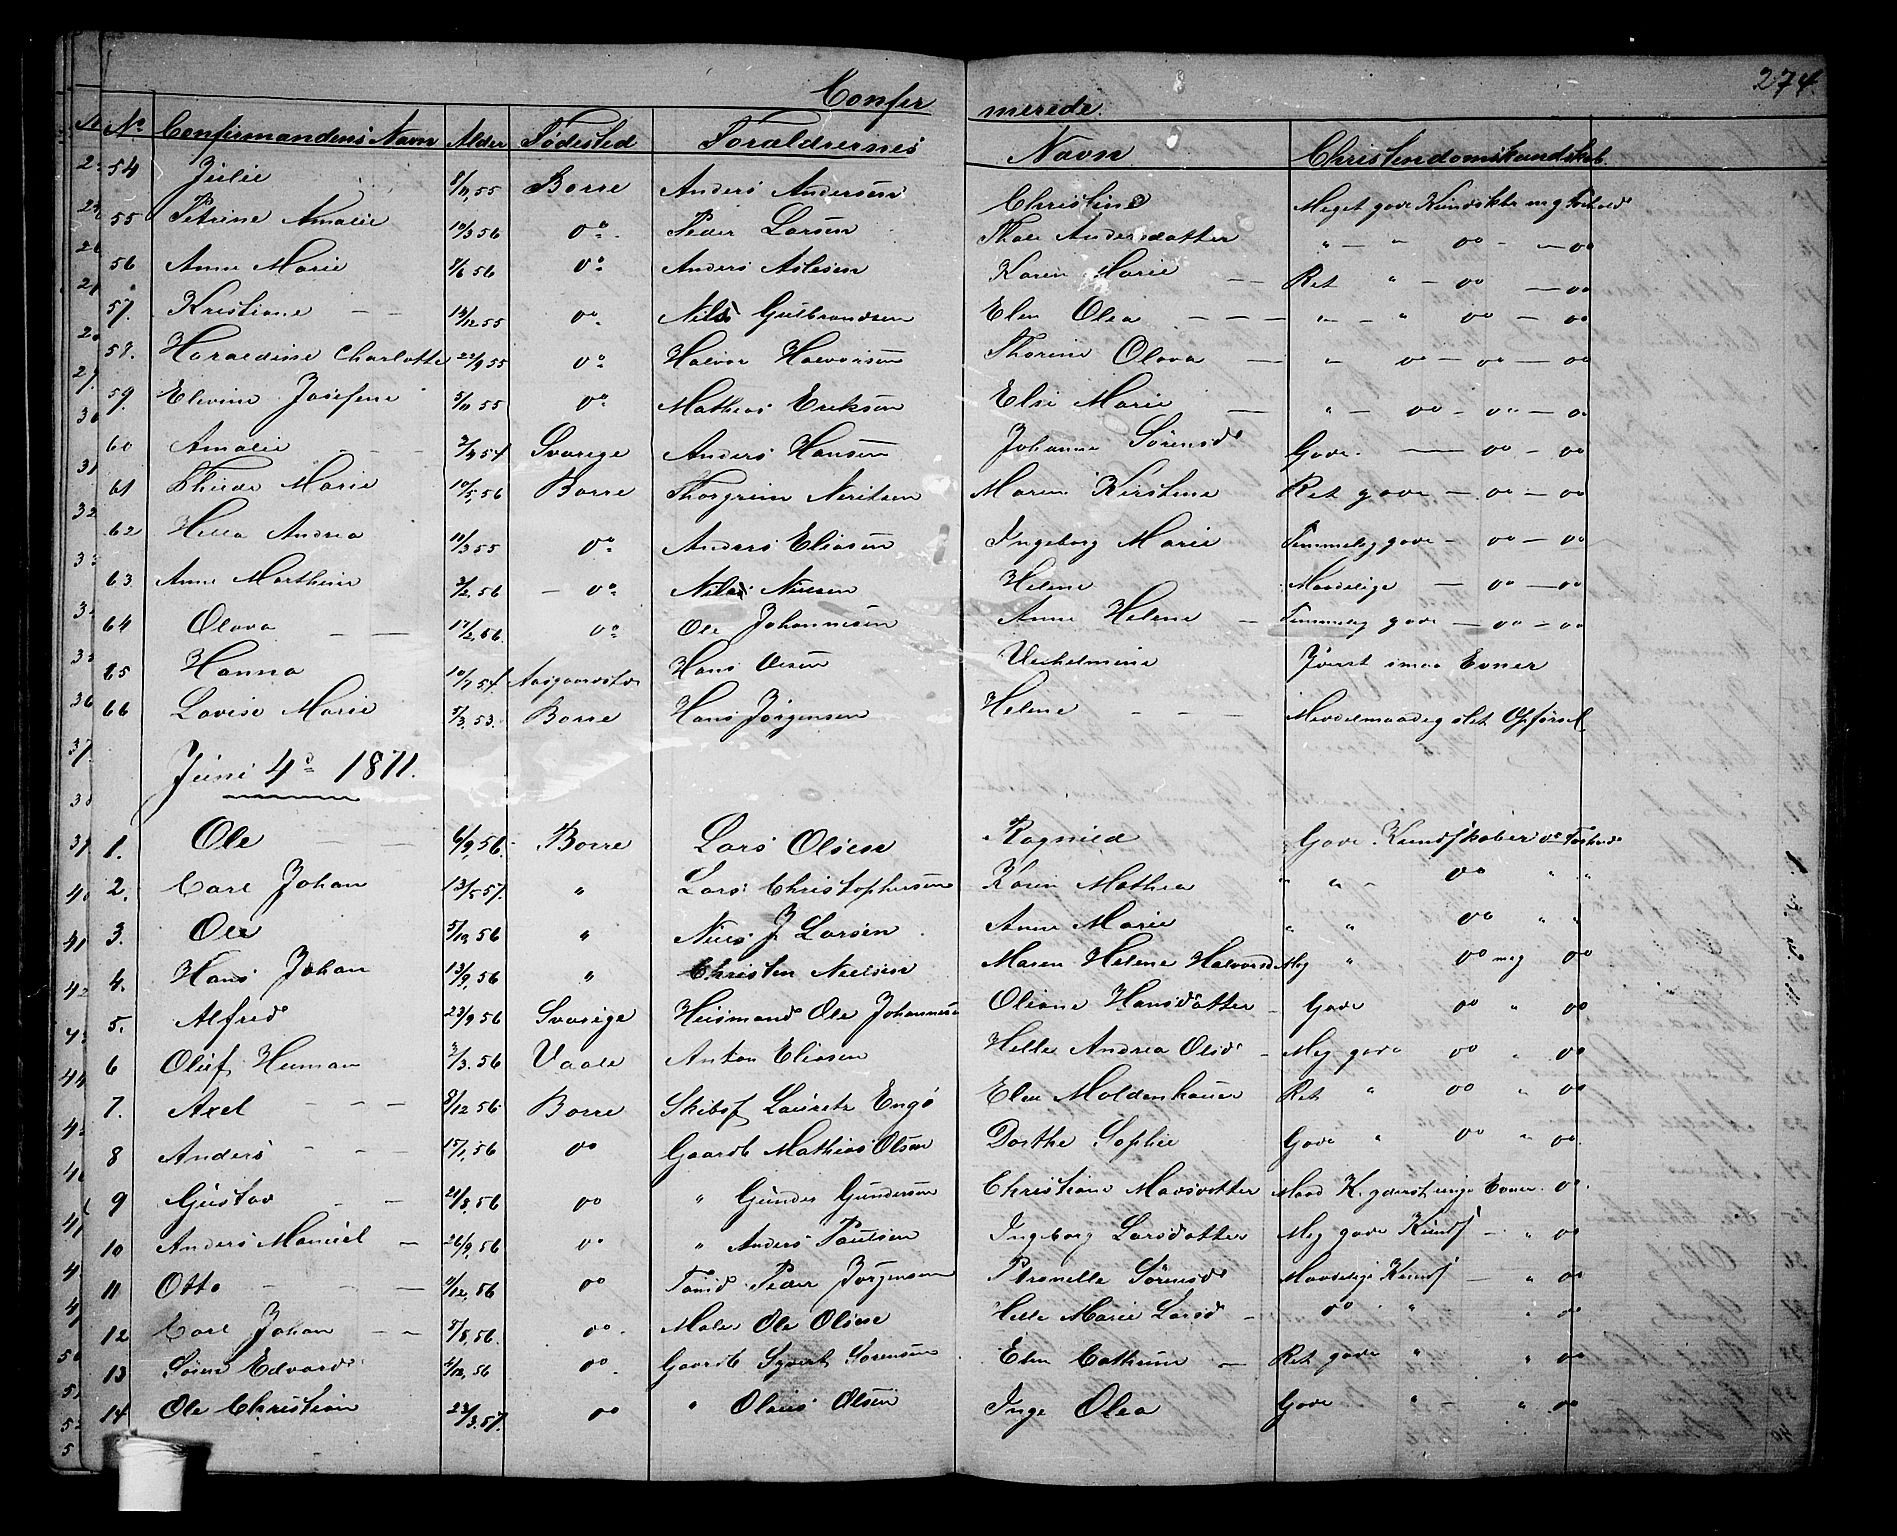 274.
Confir merede.
No Confirmandens Navn Alder Fødested Forældrernes Navn Christendomskundskab
54 Julie 8/11,55 Borre Anders Andersen Christine Meget gode Kundskb meg Forhold
55 Petrine Amalie 10/3 56 do Peder Larsen Thale Andersdatter " — " do — do
56 Anne Marie 56 do Anders Aslesen Karen Marie Ret " — do — do
57. Kristiane 13/12 55 do Nils Gulbrandsen Elen Olea " — " do — do
58. Haraldine Charlotte 22/9 55 do Halvor Halvorsen Thorine Olava " do — do — do
59. Elevine Josefine 5/11 55 do Mathias Eriksen Else Marie " — do — do — do
60 Amalie 54 Sverige Anders Hansen Johanne Sørensd Gode — do — do
61 Marie 10/5,56 Borre Thorgrim Maren Kirstine Ret gode — do — do
62 Helle Andrea 10/3 55 do Anders Eliasen Ingeborg Marie Temmelig gode — do — do
63. Anne Marthine 2/2,56 do Nils Nilsen Helene Maadelige — do — do
64 Olava 17/2,56. do Ole Johannesen Anne Helene Temmelig gode — do — do
65 Hanna 10/7 54 Aasgaardstr Hans Olsen Vilhelmine Yderst smaa Evner
66 Lovise Marie 5/3,53. Borre Hans Jørgensen Helene Middelmaadig slet Opførsel
Juni 4d 1871.
1. Ole 6/9,56. Borre Lars Olsen Ragnild Gode Kundskaber do Forhold
2. Carl Johan 13/5 57. " Lars Christophersen Karen Mathea " " do " "
3. Ole 5/10 56 " Niels J Larsen Anne Marie " " do " "
4. Hans Johan 13/9,56 " Christen Nielsen Maren Helene Halvorsd Meg " do meg do
5. Alfred 23/9 56 Sverige Huusmand Ole Johannesen Oliane Hansdatter Gode do " do
6 Oluf Herman 3/3.56 Vaale Anton Eliasen Helle Andrea Olsd Meg gode do " do
7. Axel 8/12 56 Borre Skibsf Lauritz Engø Elen Moldenhauer Ret " do " do
8 Anders 15/1,56 do Gaardb Mathias Olsen Dorthe Sophie Gode " do " do
9 Gustav 21/8,56 do " Gunder Gundersen Christiane Madsdatter Maad K. yderst ringe Evner do
10 Anders Manuel 26/9,56 do " Anders Paulsen Ingeborg Larsdatter Meg gode Kundsk — " do
11 Otto 56 do Peder Jørgensen Petronelle Sørensd Maadelige Kundsk — " do
12 Carl Johan 5/8,56. do Maler Ole Olsen Helle Marie Larsd do " " do
13 Søren Edvard 5/12,56 do Gaardb Syvert Sørensen Elen Cathrine Ret gode " " do
14 Ole Christian 22/3.57. do " Olaus Olsen Inge Olea Gode " " do